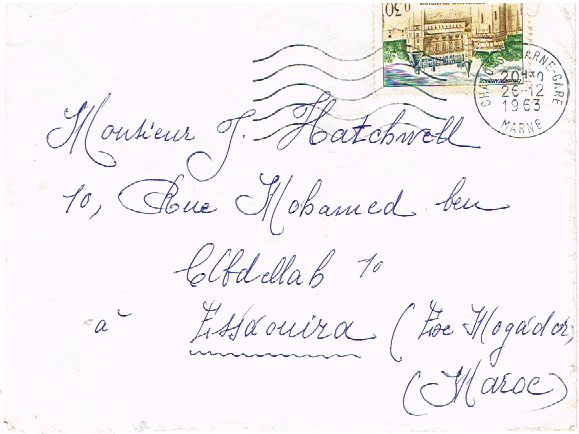 0,30
CHALONS S MARNE-GARE
20H30
26-12
1963
MARNE
Monsieur J. Hatchwell
10, Rue Mohamed ben
Abdellah 10
à Essaouira (Exe Mogador,
(Maroc)